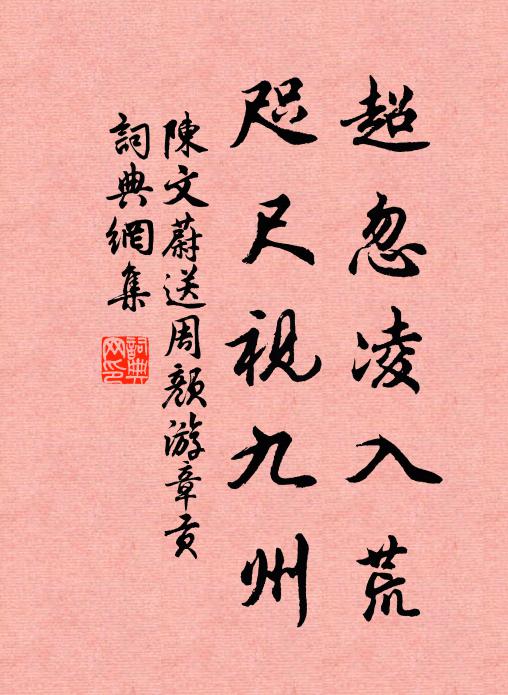 超忽凌入荒
咫尺視九州
陳文蔚送周顏游章貢
詞典網集
詞典網印